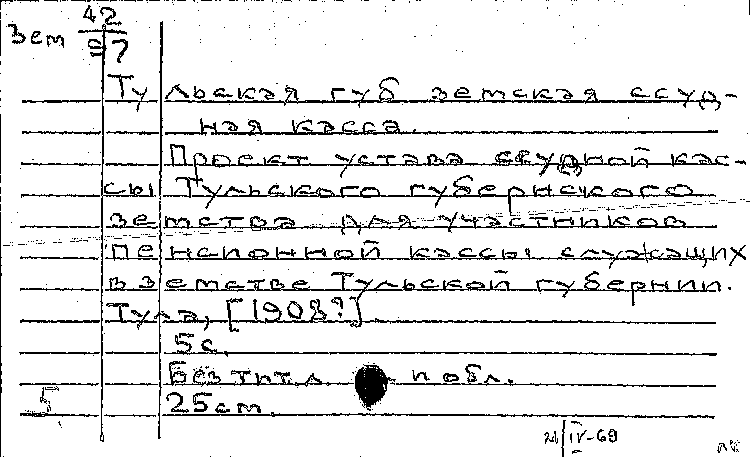 Зем 42
97
Тульская губ земская ссуд-
ная касса.
Проект устава ссудной кас-
сы Тульского губернского
земства для участников
пенсионной кассы служащих
в земстве Тульской губернии.
Тула, [1908?].
5 с.
Без тит. л. и обл.
25 cm.
5
21/IV-69